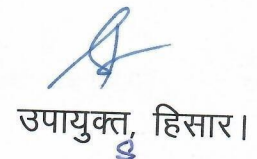 उपायुक्त, हिसार।